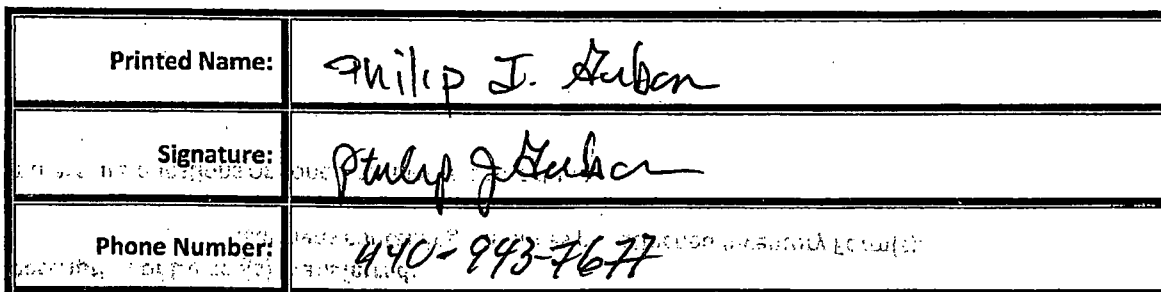 Printed Name: Philip J. Guban
Signature: Philip J Guban
Phone Number: 440-943-7677